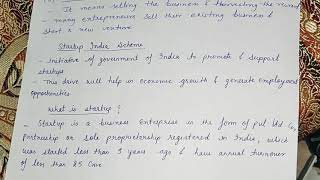 - It means selling the business & harvesting the reward
- many entrepreneurs sell their existing business &
start a new venture
Startup India Scheme
- Initiative of government of India to promote & support
startups
- This drive will help in economic growth & generate employment
opportunities
what is startup?
- Startup is a business enterprise in the form of pvt ltd co,
Partnership or sole proprietorship registered in India, which
was started less than 5 years ago & have annual turnover
of less than 25 Crore